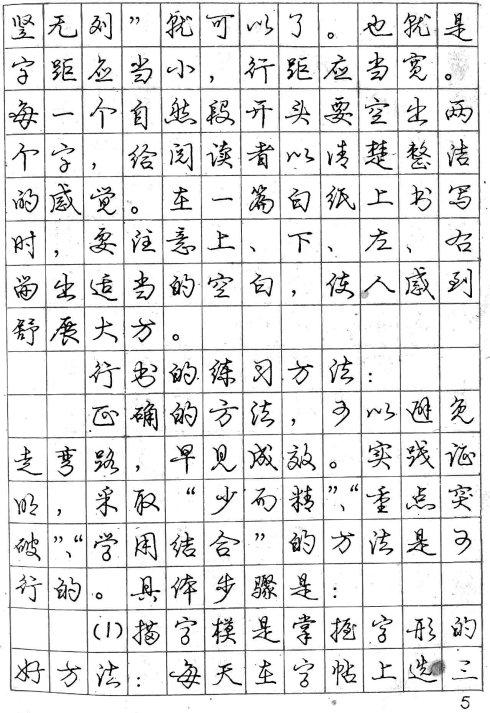 竖无列”就可以了。也就是
字距应当小，行距应当宽。
每一个自然段开头要空出两
个字，给阅读者以清楚整洁
的感觉。在一篇白纸上书写
时，要注意上、下、左、右
留出适当的空白，使人感到
舒展大方。
行书的练习方法：
正确的方法，可以避免
走弯路，早见成效。实践证
明，采取“少而精”、“重点突
破”、“学用结合”的方法是可
行的。具体步骤是：
(1)描字模是掌握字形的
好方法：每天在字帖上选三
5